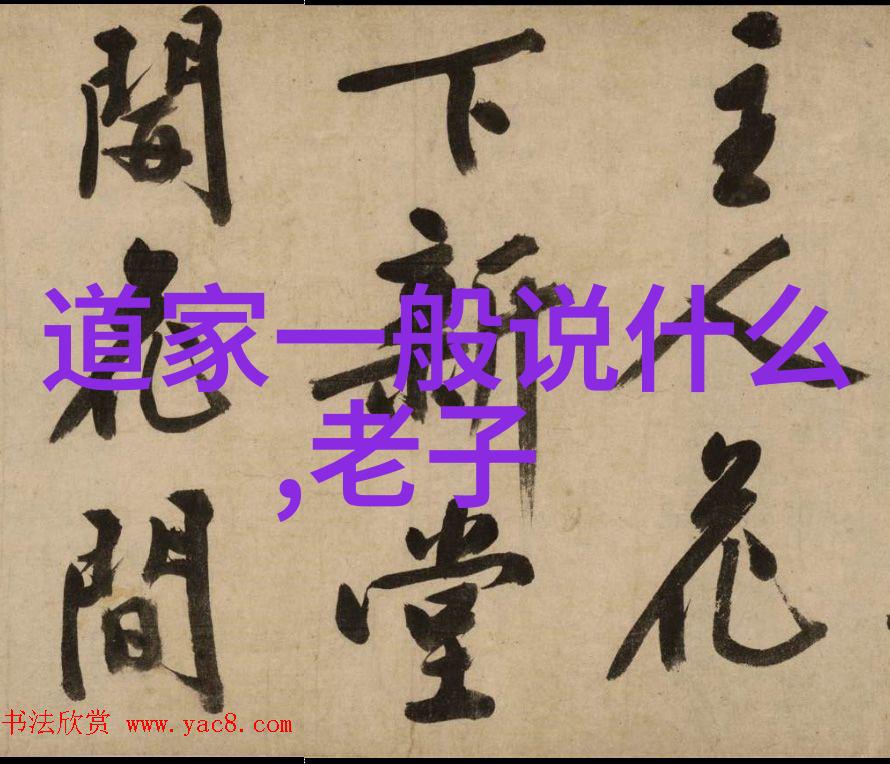 主人花
下新堂
開花間
道家一般说什么
,老子
书法欣赏 www.yac8.com